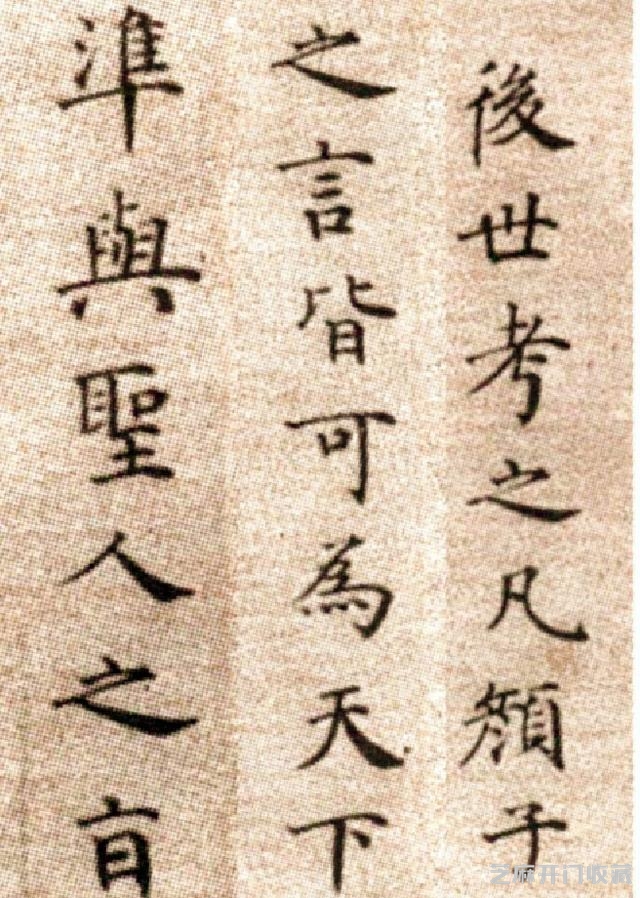 後世考之凡顔子
之言皆可為天下
準與聖人之
开门收藏